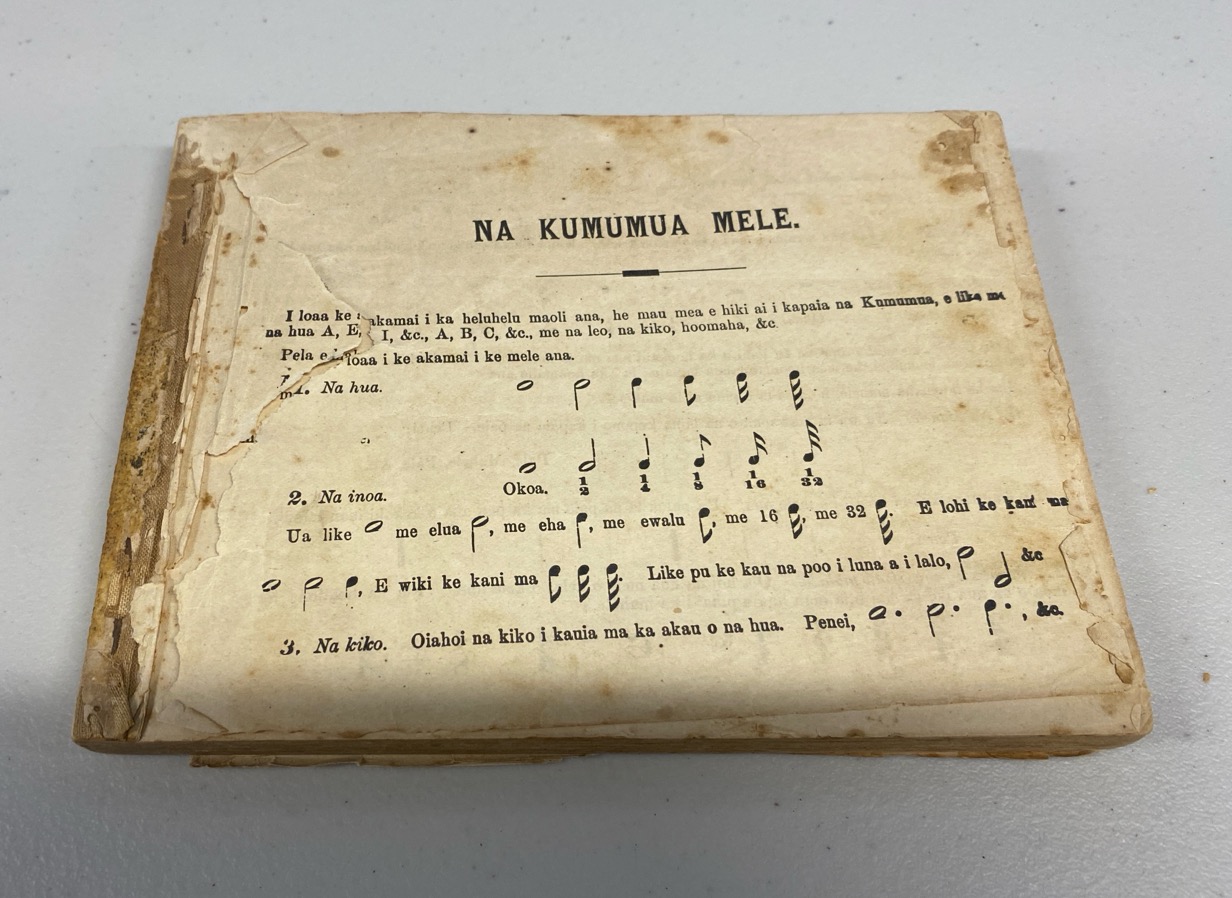 NA KUMUMUA MELE.
I loaa ke akamai i ka heluhelu maoli ana, he mau mea e hiki ai i kapaia na Kumumua, e like me
na hua A, E, I, &c., A, B, C, &c., me na leo, na kiko, hoomaha, &c
Pela e loaa i ke akamai i ke mele ana.
1. Na hua.
2. Na inoa. Okoa. 1/2 1/4 1/8 1/16 1/32
Ua like me elua , me eha , me ewalu , me 16 , me 32 . E lohi ke kani ma
, E wiki ke kani ma . Like pu ke kau na poo i luna a i lalo, &c
3. Na kiko. Oiahoi na kiko i kauia ma ka akau o na hua. Penei, , &c.